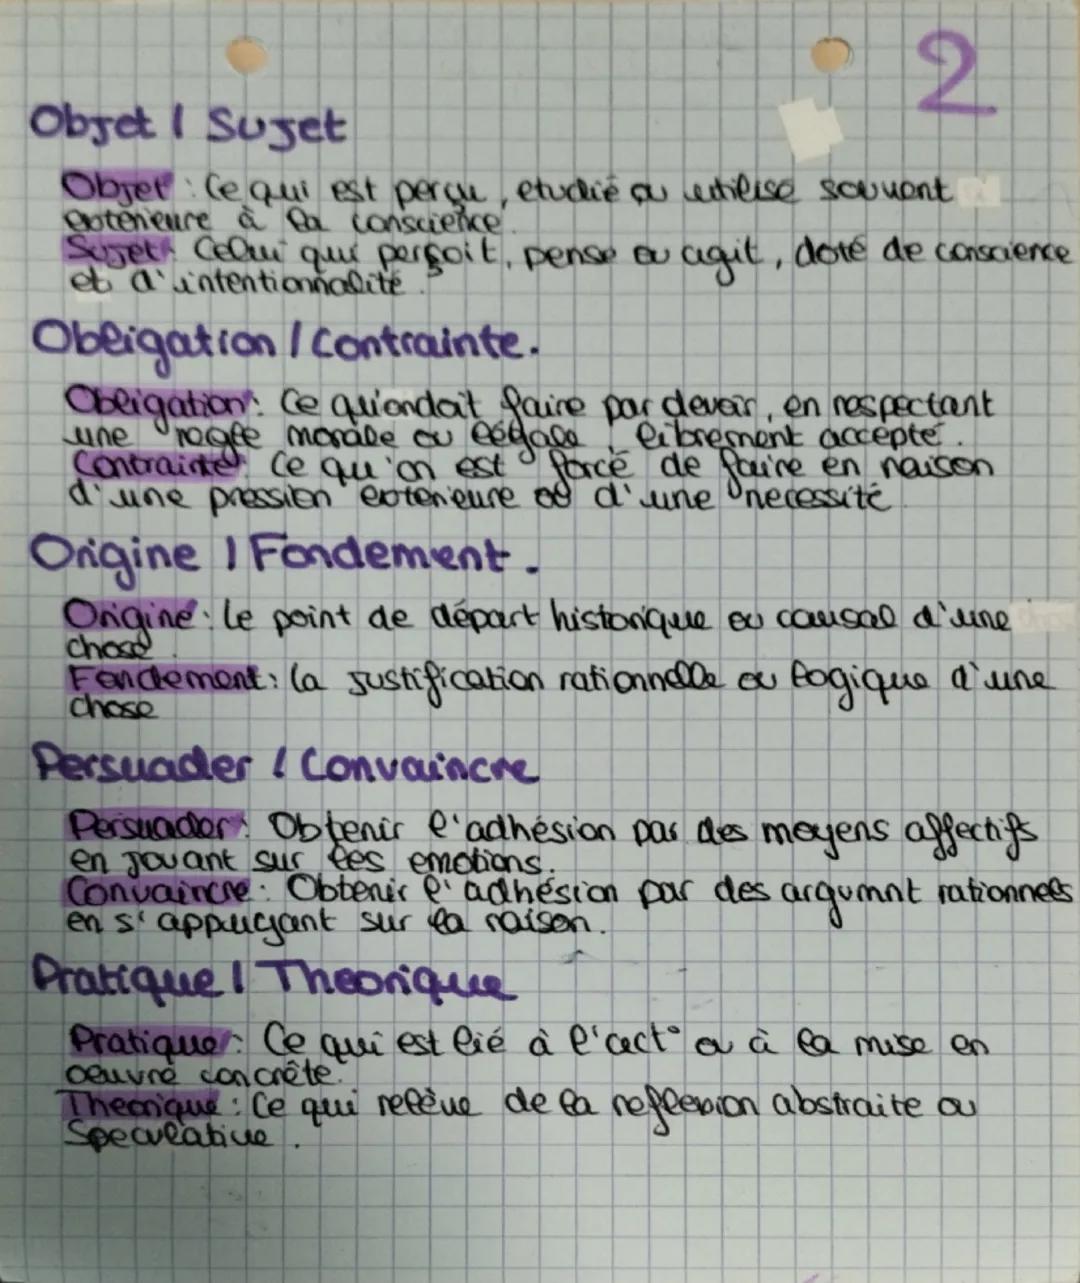 2
Objet / Sujet
Objet : Ce qui est perçu, etudié ou utilise souvent
exterieure à la conscience.
Sujet : Celui qui persoit, pense ou agit, doté de conscience
et d'intentionnalité.
Obligation / Contrainte.
Obligation : Ce qu'on doit faire par devoir, en respectant
une regle morale ou légale, librement accepté.
Contrainte : Ce qu'on est forcé de faire en raison
d'une pression exterieure ou d'une necessité
Origine / Fondement.
Origine : Le point de départ historique ou causal d'une
chose.
Fondement : la justification rationnelle ou logique d'une
chose
Persuader / Convaincre
Persuader : Obtenir l'adhésion par des moyens affectifs
en jouant sur les emotions.
Convaincre : Obtenir l'adhésion par des argumnt rationnels
en s'appuyant sur la raison.
Pratique / Theorique
Pratique : Ce qui est lié à l'act° ou à la mise en
oeuvre concrête.
Theorique : Ce qui relève de la reflexion abstraite ou
Speculative.